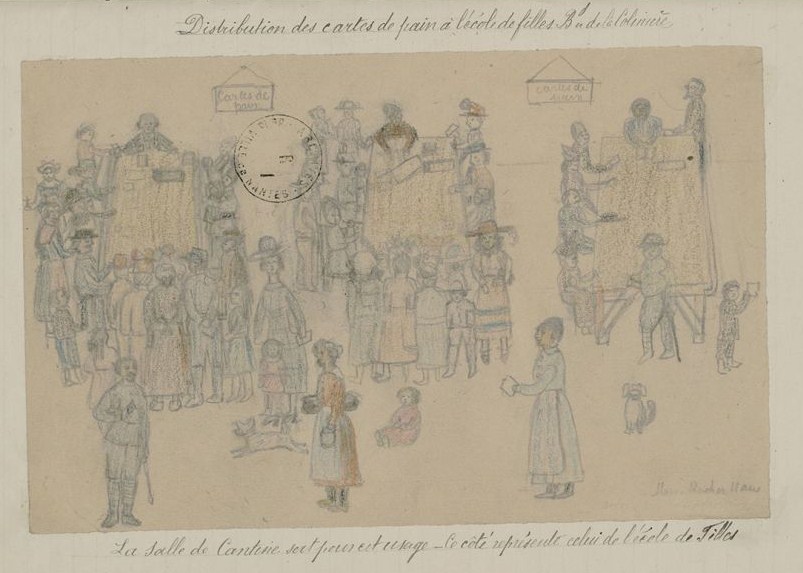 Distribution des cartes de pain à l'école de filles Bd de la Colinière
Cartes de pain
cartes de sucre
VILLE DE NANTES
La Salle de Cantine sert pour cet usage - Ce côté représente celui de l'école de Filles